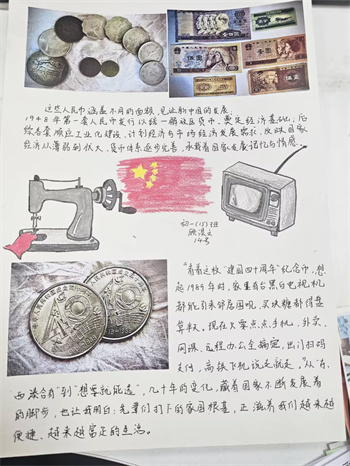 这些人民币涵盖不同的面额,见证新中国的发展。
1948年第一套人民币发行以统一解放区货币,奠定经济基础,后
续各套顺应工业化建设、计划经济与市场经济发展需求,反映国家
经济从薄弱到强大,货币体系逐步完善,承载着国家发展记忆与情感。
初一(15)班
14号
"看着这枚"建国四十周年"纪念币,想
起1989年时,家里有台黑白电视机
都能引来邻居围观,买块糖都得盘
算数。现在 点点手机,外卖、
网课、远程办公全搞定,出门扫码
支付,高铁飞机说走就走。"从"东
西凑合有"到"想要就能选",几十年的变化,藏着国家不断发展着
的脚步,也让我明白:先辈们打下的家国根基,正滋养我们越来越
便捷,越来越富足的生活。